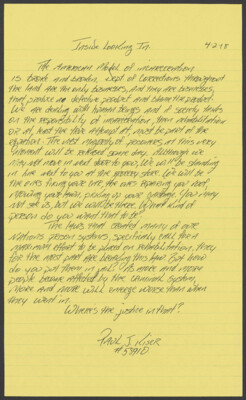 Inside Looking In
4-2-18
The American Model of incarceration
is broke and broken. Dept of Corrections throughout
the land are the only businesses, and they are businesses,
that produce a defective product and blame the product.
We are dealing with human beings and if society insists
on the responsibility of incarceration, then rehabilitation
or at least the fair attempt at, must be part of the
equation. The vast majority of prisoners at this very
moment will be released some day. Although we
may not move in next door to you, we will be standing
in line next to you at the grocery store. We will be
the ones fixing your car,
mowing your lawn, You may
not see us, but we will be there. What kind of
person do you want that to be?
The laws that created many of our
Nation's prison systems, specifically call for a
maximum effort to be placed on rehabilitation, they
for the most part are breaking this law. But how
do you put them in jail? As more and more
people become affected by the criminal system,
more and more will emerge worse than when
they went in.
Where's the justice in that?
Paul J.